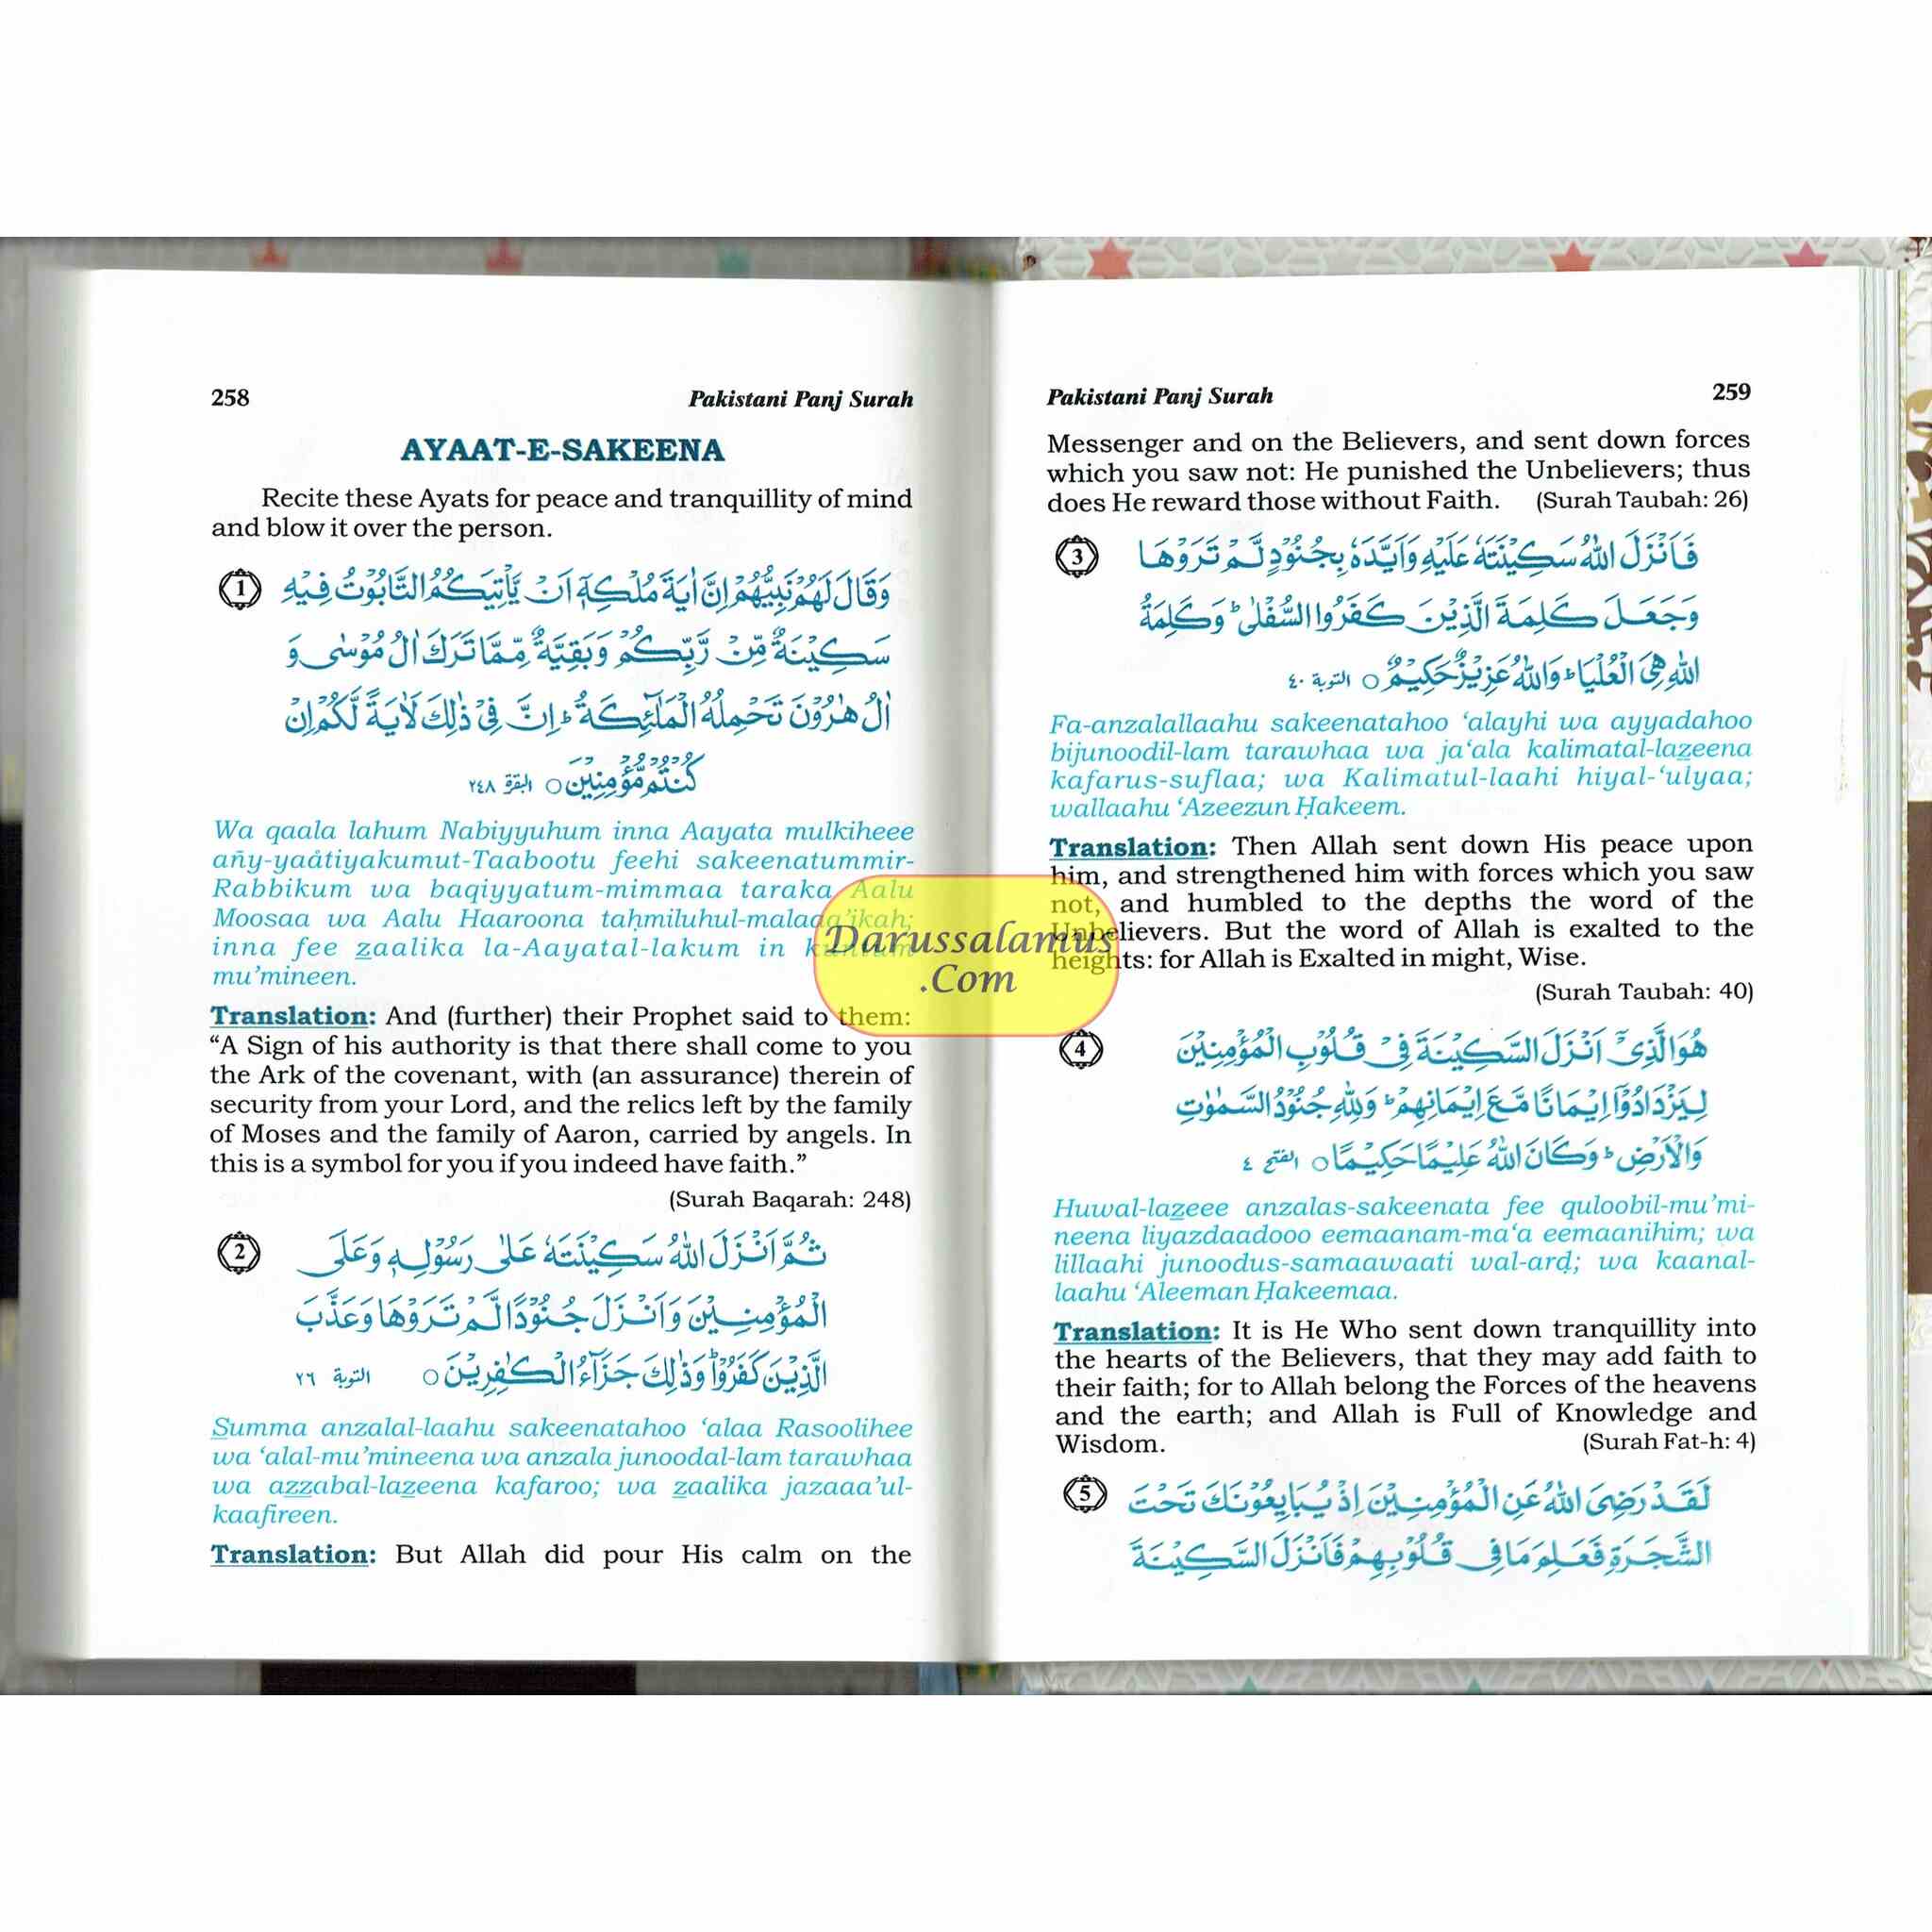 258 Pakistani Panj Surah
AYAAT-E-SAKEENA
Recite these Ayats for peace and tranquillity of mind
and blow it over the person.
1 وَقَالَ لَهُمْ نَبِيُّهُمْ اِنَّ اٰيَةَ مُلْكِهٖٓ اَنْ يَّاْتِيَكُمُ التَّابُوْتُ فِيْهِ
سَكِيْنَةٌ مِّنْ رَّبِّكُمْ وَبَقِيَّةٌ مِّمَّا تَرَكَ اٰلُ مُوْسٰى وَ
اٰلُ هٰرُوْنَ تَحْمِلُهُ الْمَلٰٓئِكَةُ ؕ اِنَّ فِيْ ذٰلِكَ لَاٰيَةً لَّكُمْ اِنْ
كُنْتُمْ مُّؤْمِنِيْنَ ○ البقرة ٢٤٨
Wa qaala lahum Nabiyyuhum inna Aayata mulkiheee
añy-yaåtiyakumut-Taabootu feehi sakeenatummir-
Rabbikum wa baqiyyatum-mimmaa taraka Aalu
Moosaa wa Aalu Haaroona taḥmiluhul-malaaa’ikah;
inna fee zaalika la-Aayatal-lakum in kuntum
mu’mineen.
Translation: And (further) their Prophet said to them:
“A Sign of his authority is that there shall come to you
the Ark of the covenant, with (an assurance) therein of
security from your Lord, and the relics left by the family
of Moses and the family of Aaron, carried by angels. In
this is a symbol for you if you indeed have faith.”
(Surah Baqarah: 248)
2 ثُمَّ اَنْزَلَ اللّٰهُ سَكِيْنَتَهٗ عَلٰى رَسُوْلِهٖ وَعَلَى
الْمُؤْمِنِيْنَ وَاَنْزَلَ جُنُوْدًا لَّمْ تَرَوْهَا وَعَذَّبَ
الَّذِيْنَ كَفَرُوْا ؕ وَذٰلِكَ جَزَآءُ الْكٰفِرِيْنَ ○ التوبة ٢٦
Summa anzalal-laahu sakeenatahoo ‘alaa Rasoolihee
wa ‘alal-mu’mineena wa anzala junoodal-lam tarawhaa
wa azzabal-lazeena kafaroo; wa zaalika jazaaa’ul-
kaafireen.
Translation: But Allah did pour His calm on the
Pakistani Panj Surah 259
Messenger and on the Believers, and sent down forces
which you saw not: He punished the Unbelievers; thus
does He reward those without Faith. (Surah Taubah: 26)
3 فَاَنْزَلَ اللّٰهُ سَكِيْنَتَهٗ عَلَيْهِ وَاَيَّدَهٗ بِجُنُوْدٍ لَّمْ تَرَوْهَا
وَجَعَلَ كَلِمَةَ الَّذِيْنَ كَفَرُوا السُّفْلٰى ؕ وَكَلِمَةُ
اللّٰهِ هِيَ الْعُلْيَا ؕ وَاللّٰهُ عَزِيْزٌ حَكِيْمٌ ○ التوبة ٤٠
Fa-anzalallaahu sakeenatahoo ‘alayhi wa ayyadahoo
bijunoodil-lam tarawhaa wa ja‘ala kalimatal-lazeena
kafarus-suflaa; wa Kalimatul-laahi hiyal-‘ulyaa;
wallaahu ‘Azeezun Ḥakeem.
Translation: Then Allah sent down His peace upon
him, and strengthened him with forces which you saw
not, and humbled to the depths the word of the
Unbelievers. But the word of Allah is exalted to the
heights: for Allah is Exalted in might, Wise.
(Surah Taubah: 40)
4 هُوَ الَّذِيْٓ اَنْزَلَ السَّكِيْنَةَ فِيْ قُلُوْبِ الْمُؤْمِنِيْنَ
لِيَزْدَادُوْٓا اِيْمَانًا مَّعَ اِيْمَانِهِمْ ؕ وَلِلّٰهِ جُنُوْدُ السَّمٰوٰتِ
وَالْاَرْضِ ؕ وَكَانَ اللّٰهُ عَلِيْمًا حَكِيْمًا ○ الفتح ٤
Huwal-lazeee anzalas-sakeenata fee quloobil-mu’mi-
neena liyazdaadooo eemaanam-ma‘a eemaanihim; wa
lillaahi junoodus-samaawaati wal-arḍ; wa kaanal-
laahu ‘Aleeman Ḥakeemaa.
Translation: It is He Who sent down tranquillity into
the hearts of the Believers, that they may add faith to
their faith; for to Allah belong the Forces of the heavens
and the earth; and Allah is Full of Knowledge and
Wisdom. (Surah Fat-h: 4)
5 لَقَدْ رَضِيَ اللّٰهُ عَنِ الْمُؤْمِنِيْنَ اِذْ يُبَايِعُوْنَكَ تَحْتَ
الشَّجَرَةِ فَعَلِمَ مَا فِيْ قُلُوْبِهِمْ فَاَنْزَلَ السَّكِيْنَةَ
Darussalamus
.Com